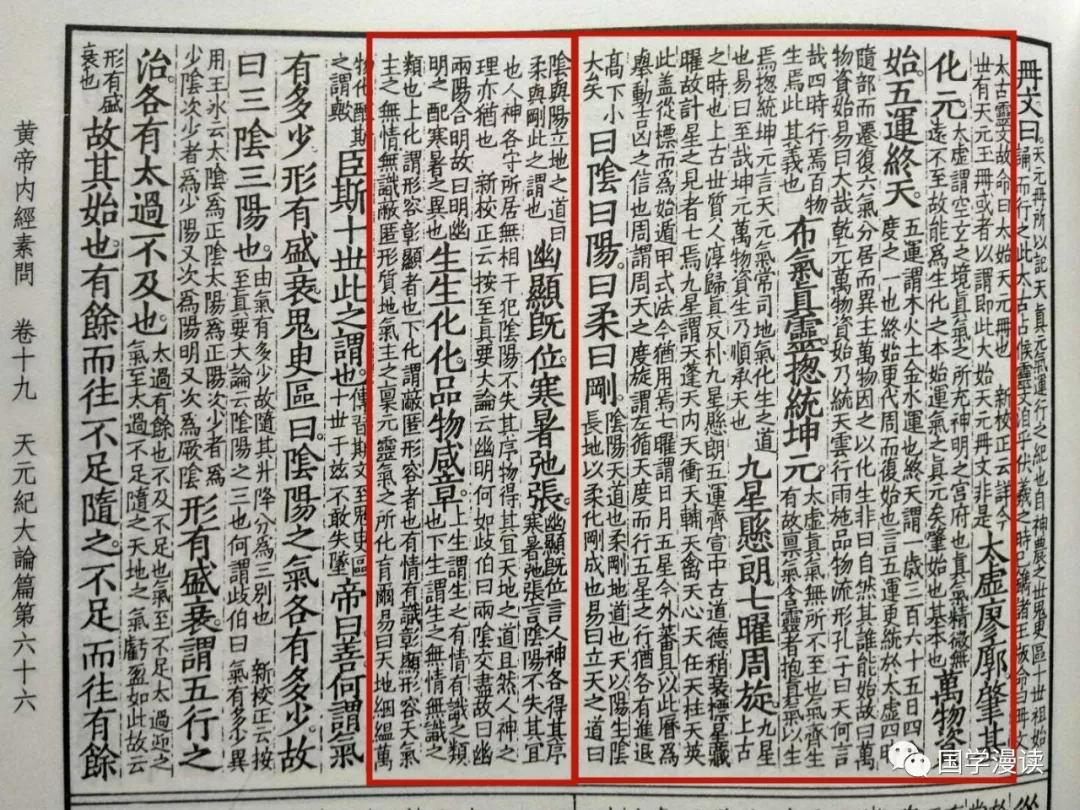 冊文曰。天元冊所以記天真元氣運行之紀也自神農之世鬼臾區十世祖始誦而行之此太古占候靈文洎乎伏羲之時已鐫諸玉版命曰冊文
太古靈文故命曰太始天元冊也 新校正云詳今世有天元玉冊或者以謂即此太始天元冊文非是太虛廖廓肇基
化元。太虛謂空玄之境真氣之所充神明之宮府也真氣精微無遠不至故能為生化之本始運氣之真元矣肇始也基本也萬物資
始。五運終天。五運謂木火土金水運也終天謂一歲三百六十五日四度之一也終始更代周而復始也言五運更統於太虛四時
隨部而遷復六氣分居而異主萬物因之以化生非曰自然其誰能始故曰萬物資始易曰大哉乾元萬物資始乃統天雲行雨施品物流形孔子曰天何言
哉四時行焉百物生焉此其義也布氣真靈揔統坤元。太虛真氣無所不至也氣齊生有故稟氣含靈者抱真氣以生
焉揔統坤元言天元氣常司地氣化生之道也易曰至哉坤元萬物資生乃順承天也九星懸朗七曜周旋。九星上古
之時也上古世質人淳歸真反朴九星懸朗五運齊宣中古道德稍衰標星藏曜故計星之見者七焉九星謂天蓬天內天衝天輔天禽天心天任天柱天英
此蓋從標而為始遁甲式法今猶用焉七曜謂日月五星今外蕃具以此曆為舉動吉凶之信也周謂周天之度旋謂左循天度而行五星之行猶各有進退
高下小大矣曰陰曰陽。曰柔曰剛。陰陽天道也柔剛地道也天以陽生陰長地以柔化剛成也易曰立天之道曰
陰與陽立地之道曰柔與剛此之謂也幽顯既位寒暑弛張。幽顯既位言人神各得其序寒暑弛張言陰陽不失其宜
也人神各守所居無相干犯陰陽不失其序物得其宜天地之道且然人神之理亦猶也 新校正云按至真要大論云幽明何如歧伯曰兩陰交盡故曰幽
兩陽合明故曰明幽明之配寒暑之異也生生化化。品物咸章。上生謂生之有情有識之類也下生謂生之無情無識之
類也上化謂形容彰顯者也下化謂蔽匿形容者也有情有識彰顯形容天氣主之無情無識蔽匿形質地氣主之稟元靈氣之所化育爾易曰天地絪縕萬
物化醇斯之謂歟臣斯十世此之謂也。傳習斯文至鬼臾區十世于茲不敢失墜帝曰善何謂氣
有多少。形有盛衰鬼臾區曰陰陽之氣各有多少。故
曰三陰三陽也。由氣有多少故隨其升降分為三別也 新校正云按至真要大論云陰陽之三也何謂歧伯曰氣有多少異
用王冰云太陰為正陰太陽為正陽次少者為少陰次少者為少陽又次為陽明又次為厥陰形有盛衰。謂五行之
治。各有太過不及也。太過有餘也不及不足也氣至不足太過迎之氣至太過不足隨之天地之氣虧盈如此故云
形有盛衰也故其始也。有餘而往不足隨之。不足而往有餘
黄帝内經素問 卷十九 天元紀大論篇第六十六
国学漫读